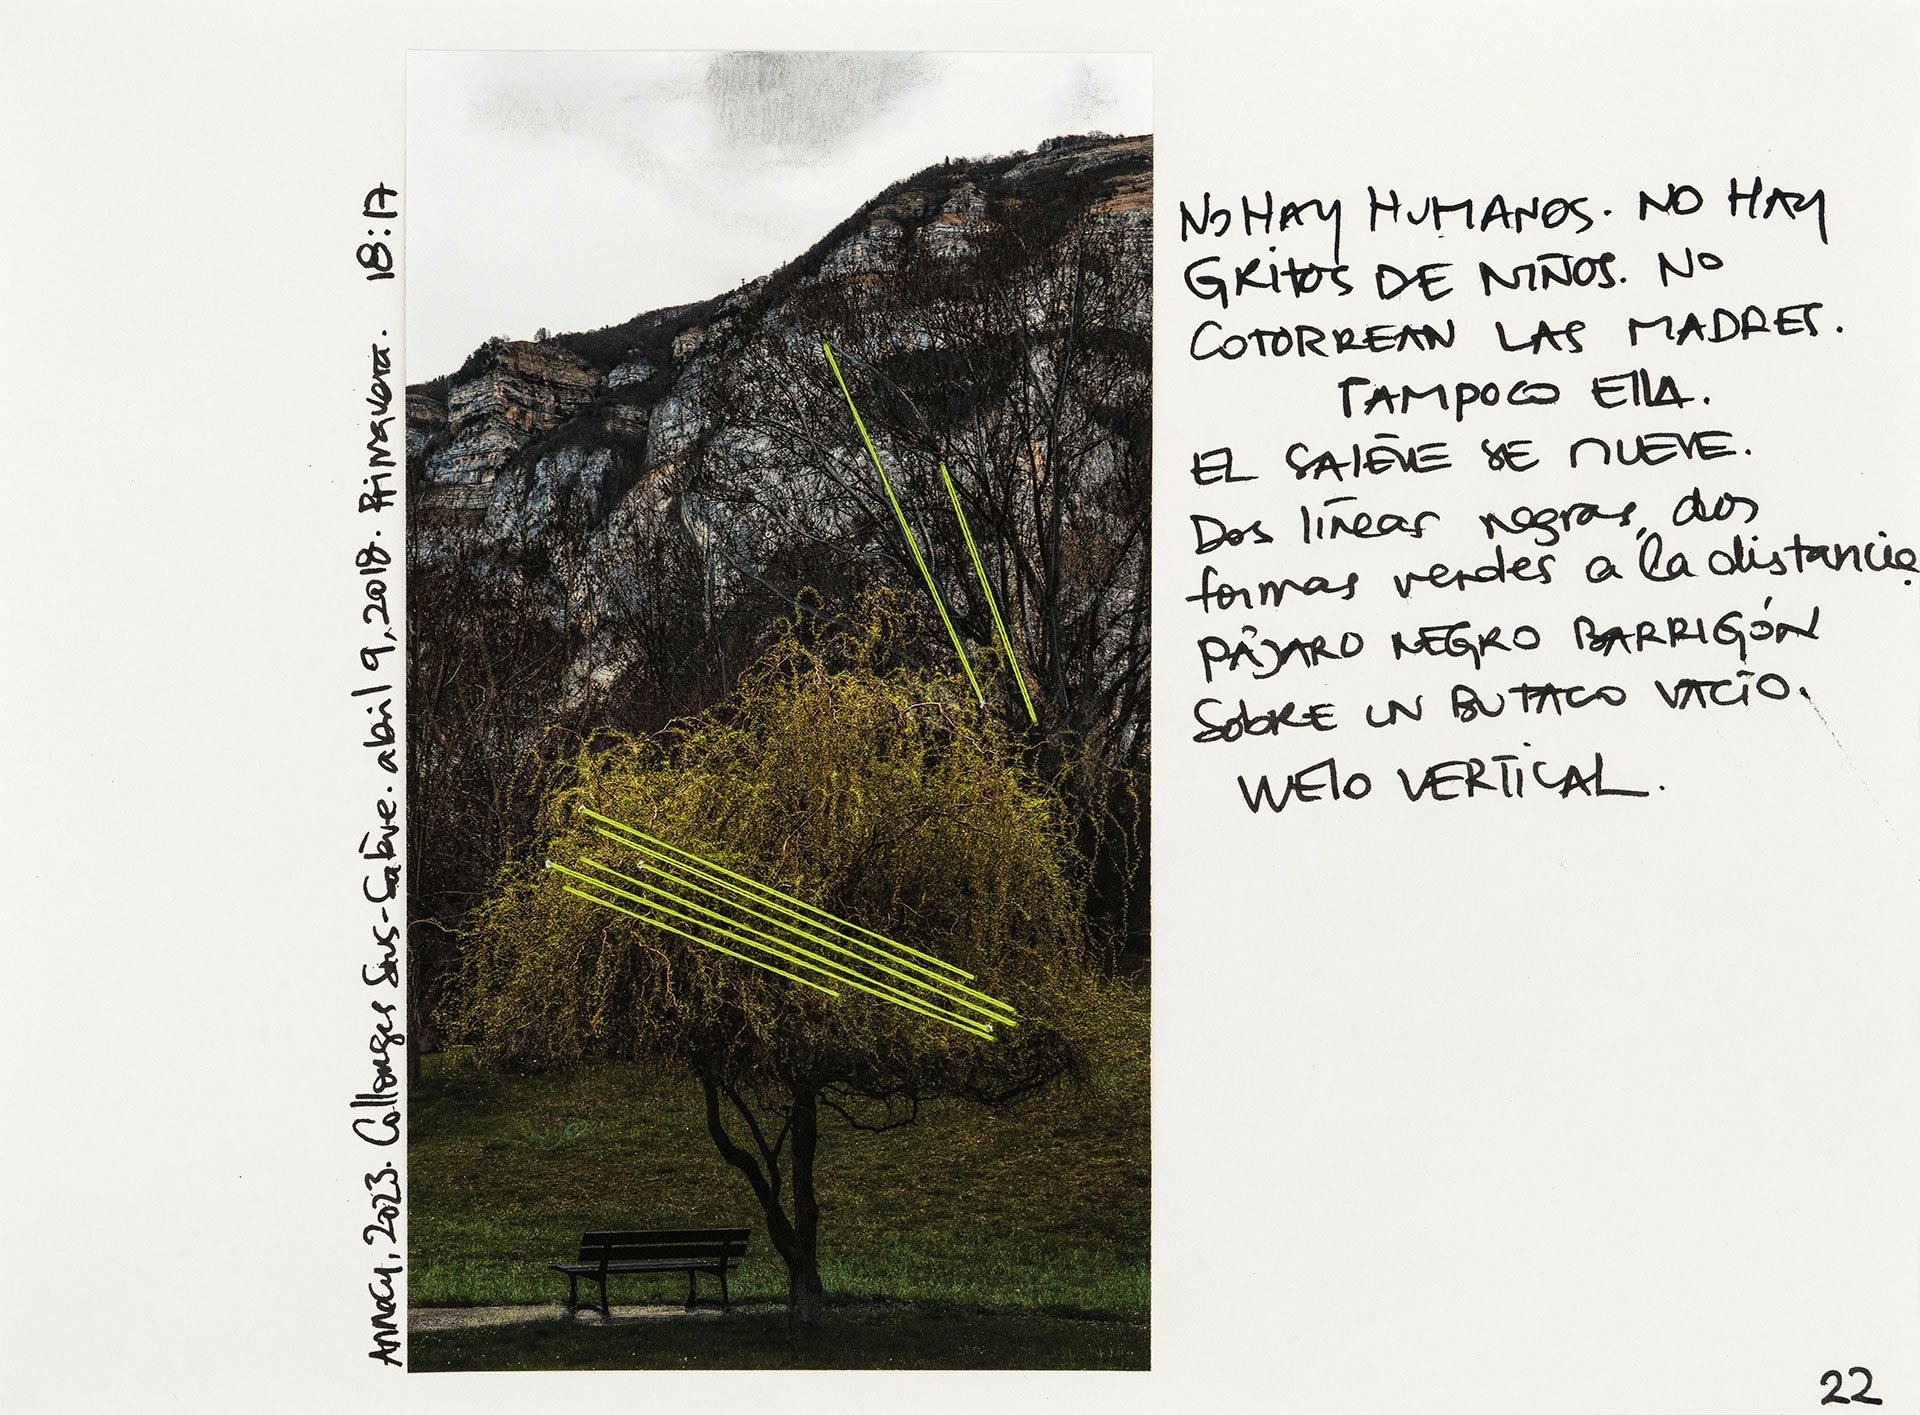 Annecy, 2023. Collonges Sous-Salève. abril 9, 2018. Primavera. 18:17
NO HAY HUMANOS. NO HAY
GRITOS DE NIÑOS. NO
COTORREAN LAS MADRES.
TAMPOCO ELLA.
EL SALÈVE SE MUEVE.
Dos líneas negras, dos
formas verdes a la distancia.
PÁJARO NEGRO BARRIGÓN
SOBRE UN BUTACO VACÍO.
VUELO VERTICAL.
22